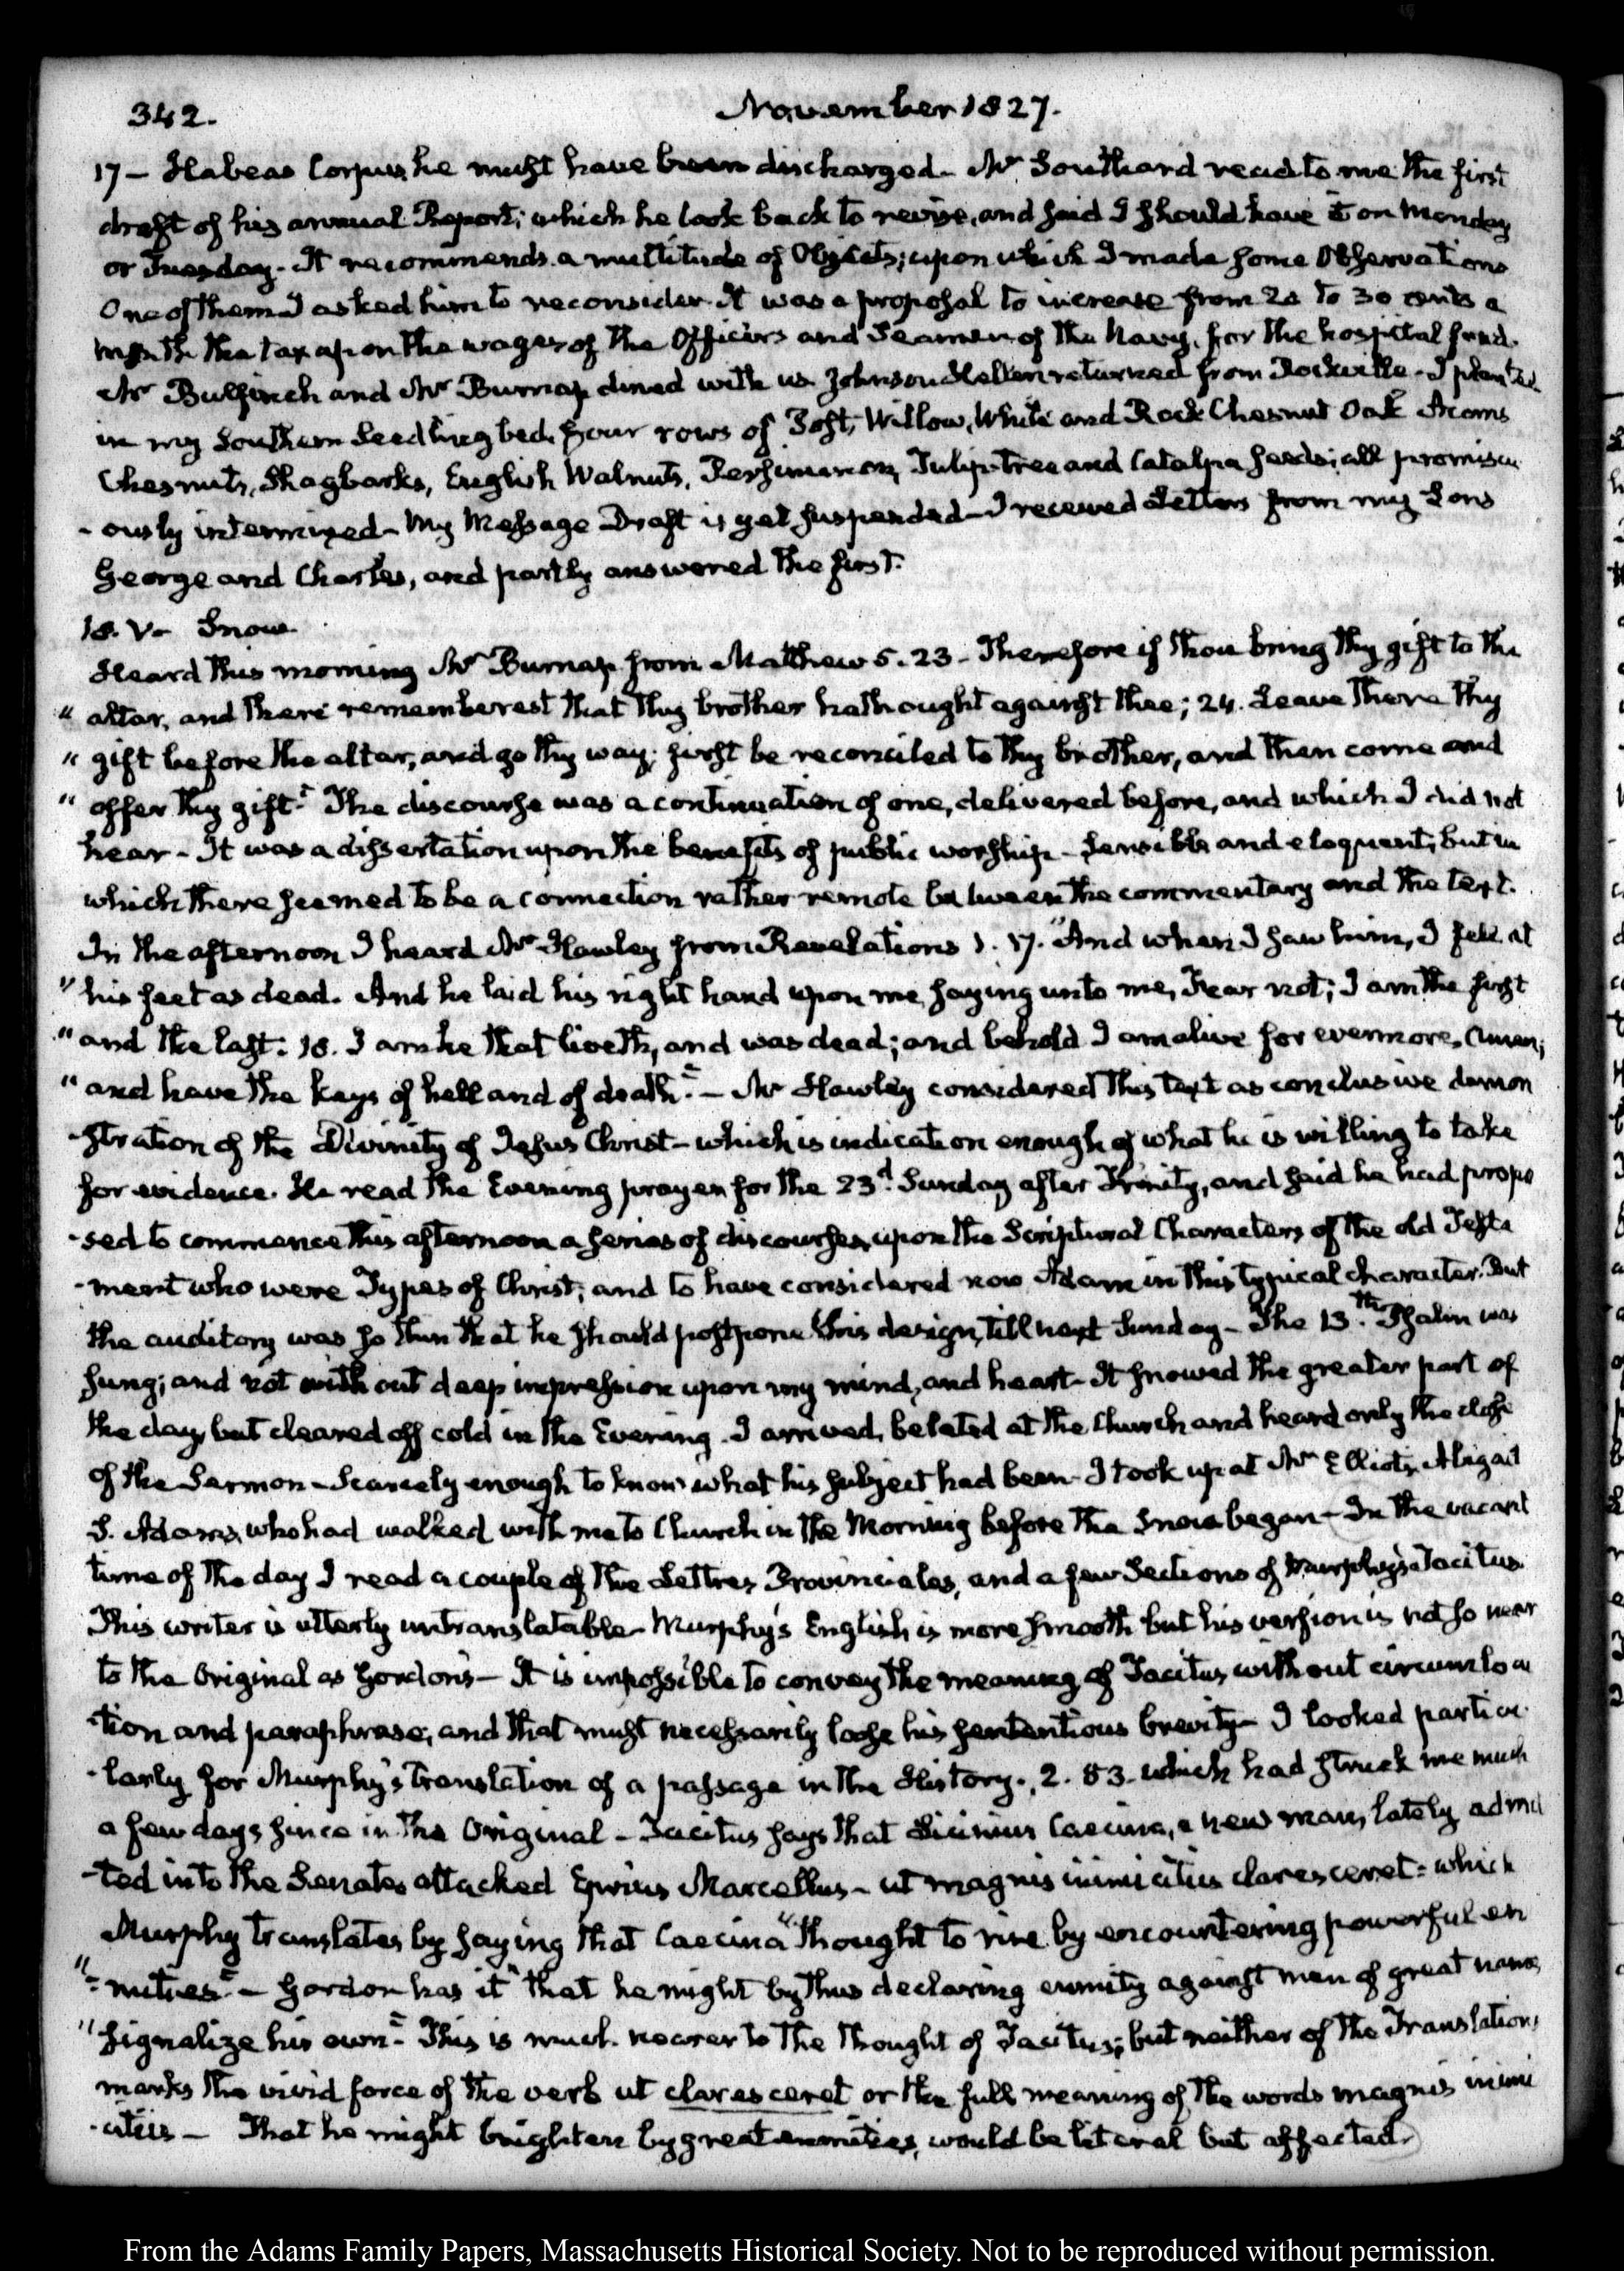 342.
November 1827.
17 — Habeas Corpus, he must have been discharged — Mr Southard read to me the first
draft of his annual Report; which he took back to revise, and said I should have it on Monday
or Tuesday — It recommends a multitude of Objects; upon which I made some Observations
One of them I asked him to reconsider. It was a proposal to increase from 20 to 30 cents a
month the tax upon the wages of the Officers and Seamen of the Navy, for the hospital fund.
Mr Bulfinch and Mr Burnap dined with us Johnson Hellen returned from Rockville — I planted
in my Southern Seedling bed, four rows of Post, Willow, White and Rock Chesnut Oak Acorns
Chesnuts, Shagbarks, English Walnuts, Persimmon, Tulip-tree and Catalpa seeds; all promiscu
-ously intermixed — My Message Draft is yet suspended — I received Letters from my Sons
George and Charles, and partly answered the first.
18. V — Snow.
Heard this morning Mr Burnap from Matthew 5. 23 — Therefore if thou bring thy gift to the
" altar, and there rememberest that thy brother hath ought against thee; 24. Leave there thy
" gift before the altar, and go thy way; first be reconciled to thy brother, and then come and
" offer thy gift." The discourse was a continuation of one, delivered before, and which I did not
hear — It was a dissertation upon the benefits of public worship — sensible and eloquent, but in
which there seemed to be a connection rather remote between the commentary and the text.
In the afternoon I heard Mr Hawley from Revelations 1. 17. "And when I saw him, I fell at
" his feet as dead. And he laid his right hand upon me, saying unto me, Fear not; I am the first
" and the last: 18. I am he that liveth, and was dead; and behold I am alive for evermore, Amen;
" and have the keys of hell and of death." — Mr Hawley considered this text as conclusive demon
-stration of the Divinity of Jesus Christ — which is indication enough of what he is willing to take
for evidence. He read the Evening prayer for the 23d. Sunday after Trinity, and said he had propo
-sed to commence this afternoon a series of discourses, upon the Scriptural Characters of the old Testa
-ment who were Types of Christ; and to have considered now Adam in this typical character. But
the auditory was so thin that he should postpone this design, till next Sunday — The 13.th Psalm was
sung; and not without deep impression upon my mind, and heart — It snowed the greater part of
the day, but cleared off cold in the Evening. I arrived, belated at the Church and heard only the close
of the Sermon — Scarcely enough to know what his subject had been — I took up at Mr Elliot's, Abigail
S. Adams, who had walked with me to Church in the Morning before the Snow began — In the vacant
time of the day I read a couple of the Lettres Provinciales, and a few Sections of Murphy's Tacitus.
This writer is utterly untranslatable — Murphy's English is more smooth but his version is not so near
to the Original as Gordon's — It is impossible to convey the meaning of Tacitus without circumlocu
-tion and paraphrase; and that must necessarily lose his sententious brevity — I looked particu
-larly for Murphy's translation of a passage in the History., 2. 53. which had struck me much
a few days since in the Original — Tacitus says that Licinius Caecina, a new man, lately admit
-ted into the Senate, attacked Eprius Marcellus — ut magnis inimicitiis claresceret: which
Murphy translates by saying that Caecina "thought to rise by encountering powerful en
"-mities" — Gordon has it "that he might by thus declaring enmity against men of great name,
" signalize his own" — This is much nearer to the thought of Tacitus; but neither of the Translations
marks the vivid force of the verb ut claresceret or the full meaning of the words magnis inimi
-citiis — That he might brighten by great enmities, would be literal but affected.
From the Adams Family Papers, Massachusetts Historical Society. Not to be reproduced without permission.